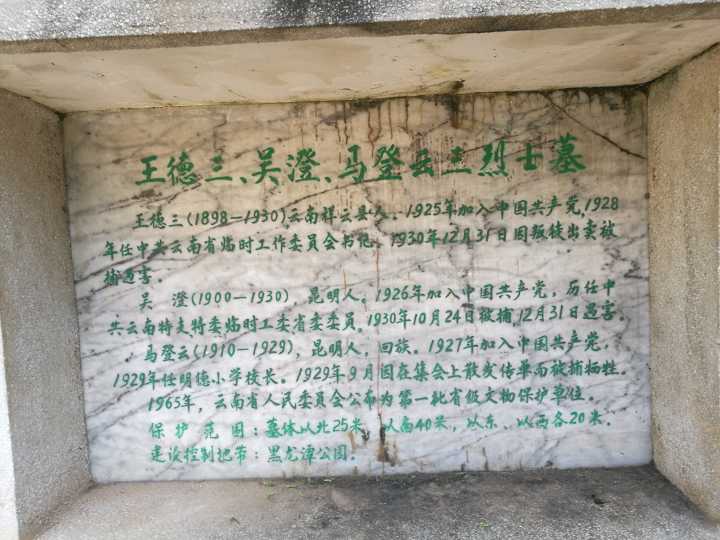 王德三、吴澄、马登云三烈士墓
王德三(1898—1930)云南祥云县人。1925年加入中国共产党,1928
年任中共云南省临时工作委员会书记。1930年12月31日因叛徒出卖被
捕遇害。
吴 澄(1900—1930),昆明人。1926年加入中国共产党,历任中
共云南特支特委临时工委省委委员,1930年10月24日被捕,12月31日遇害。
马登云(1910—1929),昆明人,回族。1927年加入中国共产党,
1929年任明德小学校长。1929年9月因在集会上散发传单而被捕牺牲。
1965年,云南省人民委员会公布为第一批省级文物保护单位。
保 护 范 围:墓体以北25米,以南40米,以东、以西各20米。
建设控制地带:黑龙潭公园。